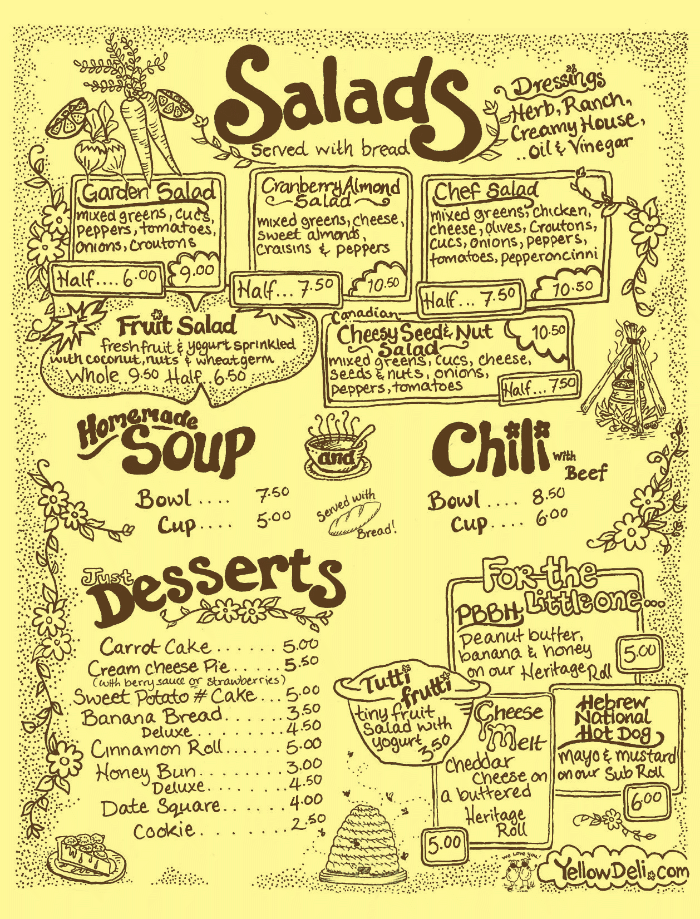 Salads
Served with bread
Dressings
Herb, Ranch,
Creamy House,
..Oil & Vinegar
Garden Salad
mixed greens, cucs,
peppers, tomatoes,
onions, croutons
Half... 6.00
9.00
Cranberry Almond
Salad
mixed greens, cheese,
sweet almonds,
craisins & peppers
Half... 7.50
10.50
Chef Salad
mixed greens, chicken,
cheese, olives, croutons,
cucs, onions, peppers,
tomatoes, pepperoncinni
Half... 7.50
10.50
Fruit Salad
fresh fruit & yogurt sprinkled
with coconut, nuts & wheatgerm
Whole 9.50 Half 6.50
Canadian
Cheesy Seed & Nut
Salad
10.50
mixed greens, cucs, cheese,
seeds & nuts, onions,
peppers, tomatoes
Half.. 7.50
Homemade
Soup
Bowl .... 7.50
Cup.... 5.00
and
Served with
Bread!
Chili with
Beef
Bowl .... 8.50
Cup.... 6.00
Just
Desserts
Carrot Cake ....... 5.00
Cream Cheese Pie ....... 5.50
(with berry sauce or strawberries)
Sweet Potato # Cake ... 5.00
Banana Bread....... 3.50
Deluxe....... 4.50
Cinnamon Roll....... 5.00
Honey Bun....... 3.00
Deluxe....... 4.50
Date Square....... 4.00
Cookie ........ 2.50
For the
Little one...
PBBH
peanut butter,
banana & honey
on our Heritage Roll
5.00
Tutti
frutti
tiny fruit
Salad with
yogurt
3.50
Cheese
Melt
Cheddar
Cheese on
a buttered
Heritage
Roll
5.00
Hebrew
National
Hot Dog
Mayo & mustard
on our Sub Roll
6.00
We love you!
YellowDeli.com